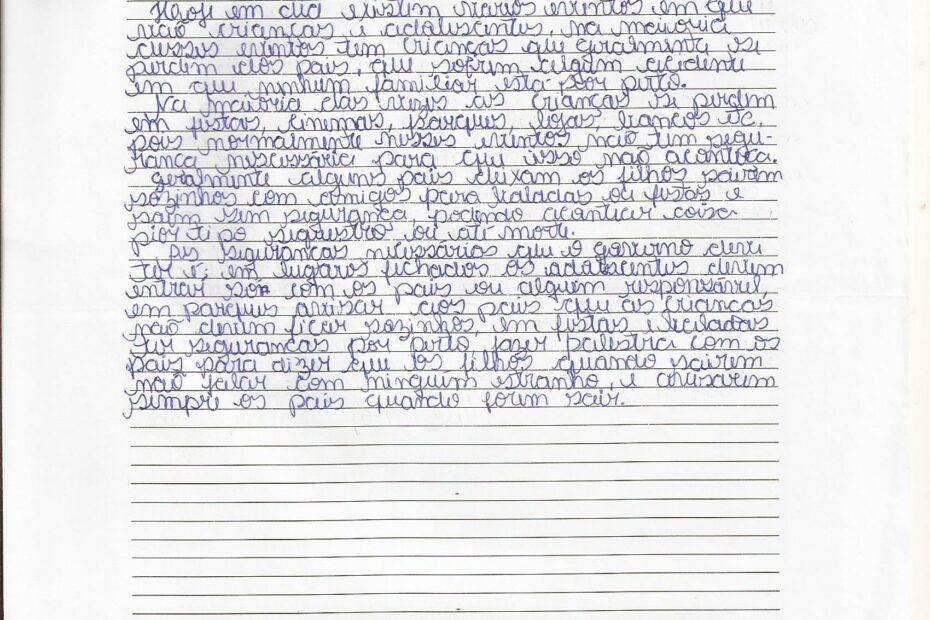 Hoje em dia existem vários eventos em que
vão crianças e adolescentes, na maioria
desses eventos tem crianças que geralmente se
perdem dos pais, que sofrem algum acidente
em que ninhum familiar está por perto.
Na maioria das vezes as crianças se perdem
em festas, cinemas, parques, lojas, bancos etc.
pois normalmente nesses eventos não tem segu-
rança nescessária para que isso não aconteça.
geralmente alguns pais deixam os filhos sairem
sozinhos com amigos para baladas ou festas e
saem sem segurança, podendo acontecer coisa
pior tipo sequestro ou até morte.
As seguranças necessárias que o governo deve
ter é; em lugares fechados os adolescentes devem
entrar só com os pais ou alguem responsável,
em parques avisar aos pais que as crianças
não devem ficar sozinhos, em festas e baladas
ter seguranças por perto, fazer palestra com os
pais para dizer que os filhos quando sairem
não falar com ninguém estranho, e avisarem
sempre os pais quando forem sair.